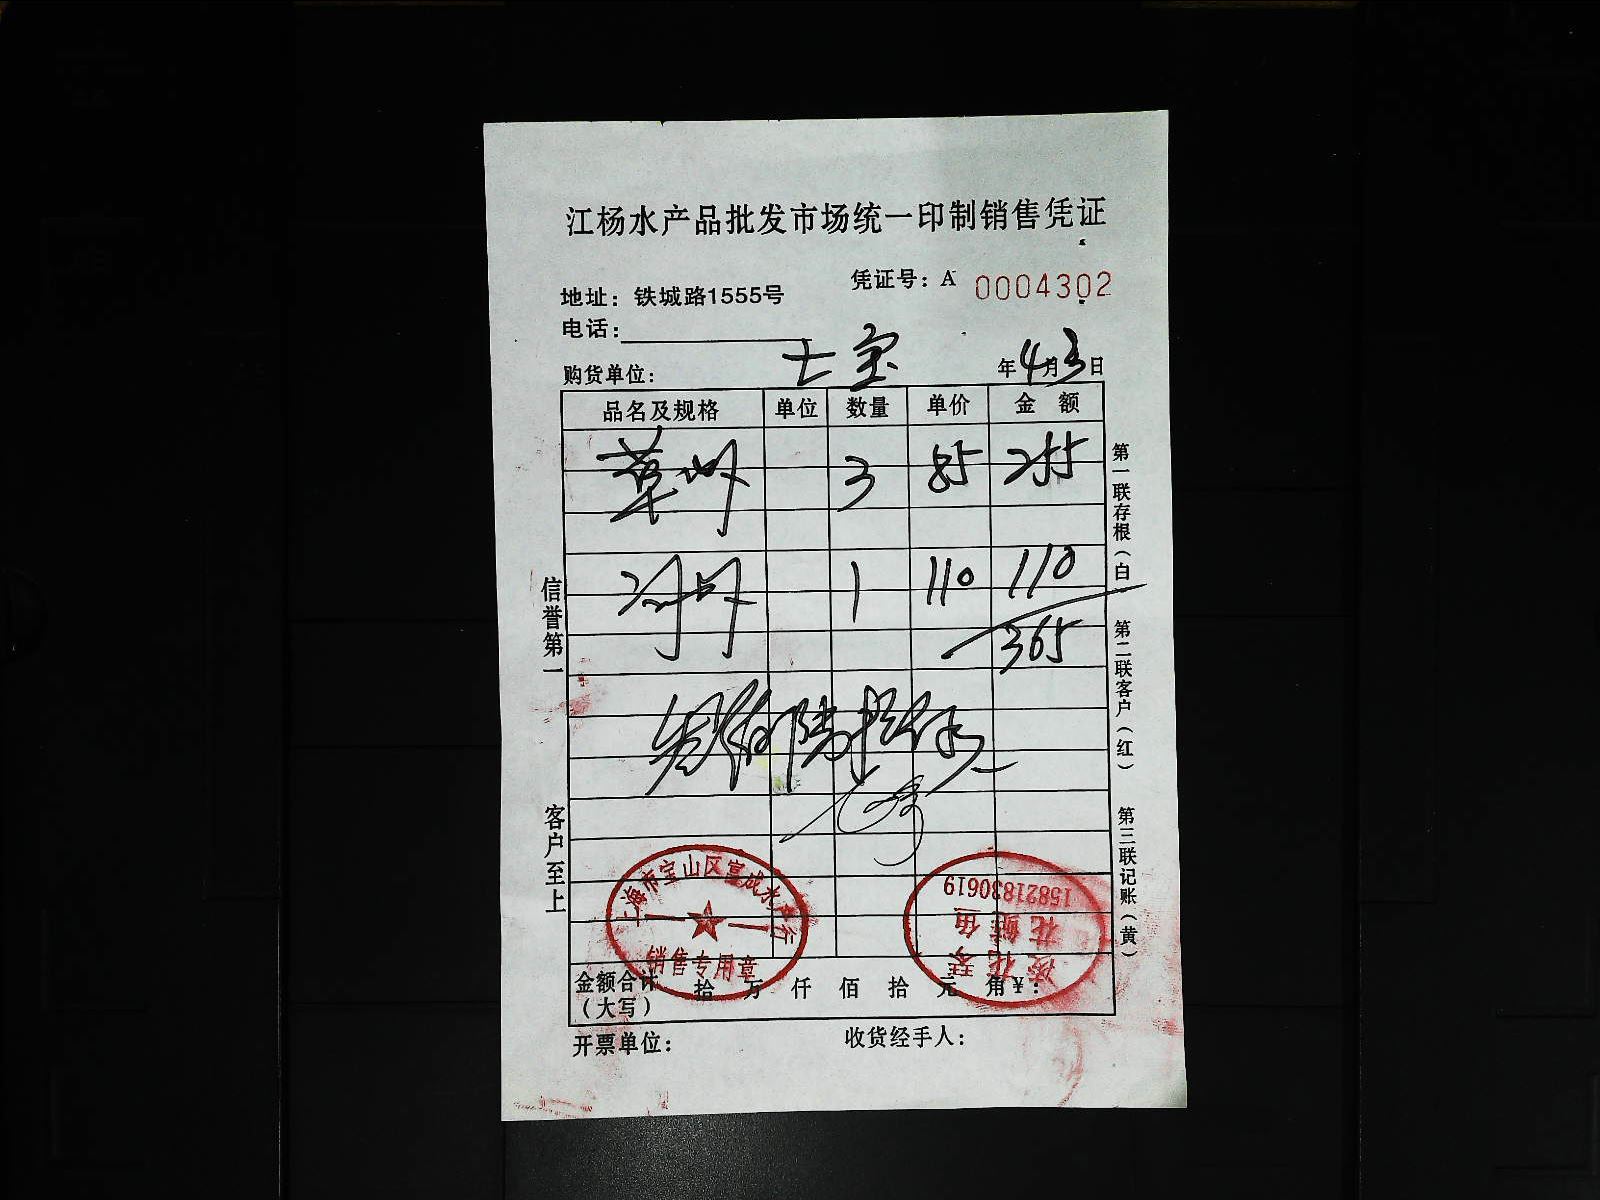 江杨水产品批发市场统一印制销售凭证
凭证号：A 0004302
地址：铁城路1555号
电话：
购货单位： 七宝 年4月3日
品名及规格 单位 数量 单价 金额
草 3 85 255
1 110 110
365
陆拾
信誉第一
客户至上
第一联存根（白）
第二联客户（红）
第三联记账（黄）
上海市宝山区富成水产行
销售专用章
15821830619
花鲢鱼
金额合计（大写） 拾 万 仟 佰 拾 元 角 ¥：
开票单位： 收货经手人：